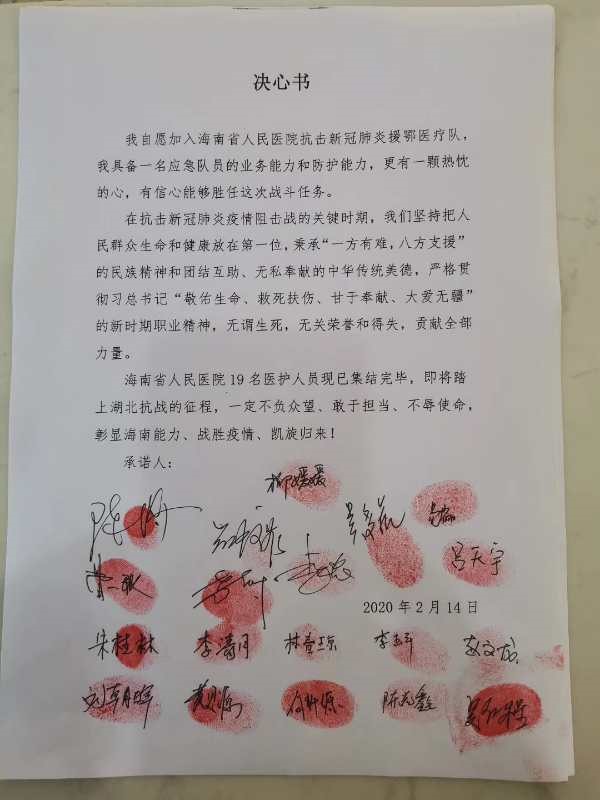 决心书
我自愿加入海南省人民医院抗击新冠肺炎援鄂医疗队，
我具备一名应急队员的业务能力和防护能力，更有一颗热忱
的心，有信心能够胜任这次战斗任务。
在抗击新冠肺炎疫情阻击战的关键时期，我们坚持把人
民群众生命和健康放在第一位，秉承“一方有难，八方支援”
的民族精神和团结互助、无私奉献的中华传统美德，严格贯
彻习总书记“敬佑生命、救死扶伤、甘于奉献、大爱无疆”
的新时期职业精神，无谓生死，无关荣誉和得失，贡献全部
力量。
海南省人民医院 19 名医护人员现已集结完毕，即将踏
上湖北抗战的征程，一定不负众望、敢于担当、不辱使命，
彰显海南能力、战胜疫情、凯旋归来！
承诺人：
柳媛媛
吕天宇
2020 年 2 月 14 日
朱桂林 李清月
刘朝晖